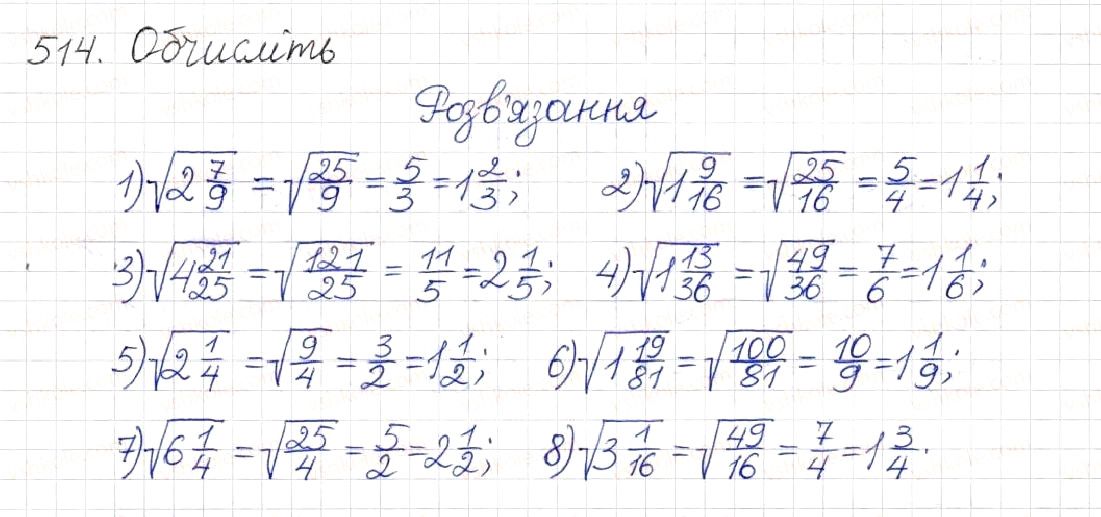 514. Обчисліть
Розв'язання
1) √(2 7/9) = √(25/9) = 5/3 = 1 2/3; 2) √(1 9/16) = √(25/16) = 5/4 = 1 1/4;
3) √(4 21/25) = √(121/25) = 11/5 = 2 1/5; 4) √(1 13/36) = √(49/36) = 7/6 = 1 1/6;
5) √(2 1/4) = √(9/4) = 3/2 = 1 1/2; 6) √(1 19/81) = √(100/81) = 10/9 = 1 1/9;
7) √(6 1/4) = √(25/4) = 5/2 = 2 1/2; 8) √(3 1/16) = √(49/16) = 7/4 = 1 3/4.